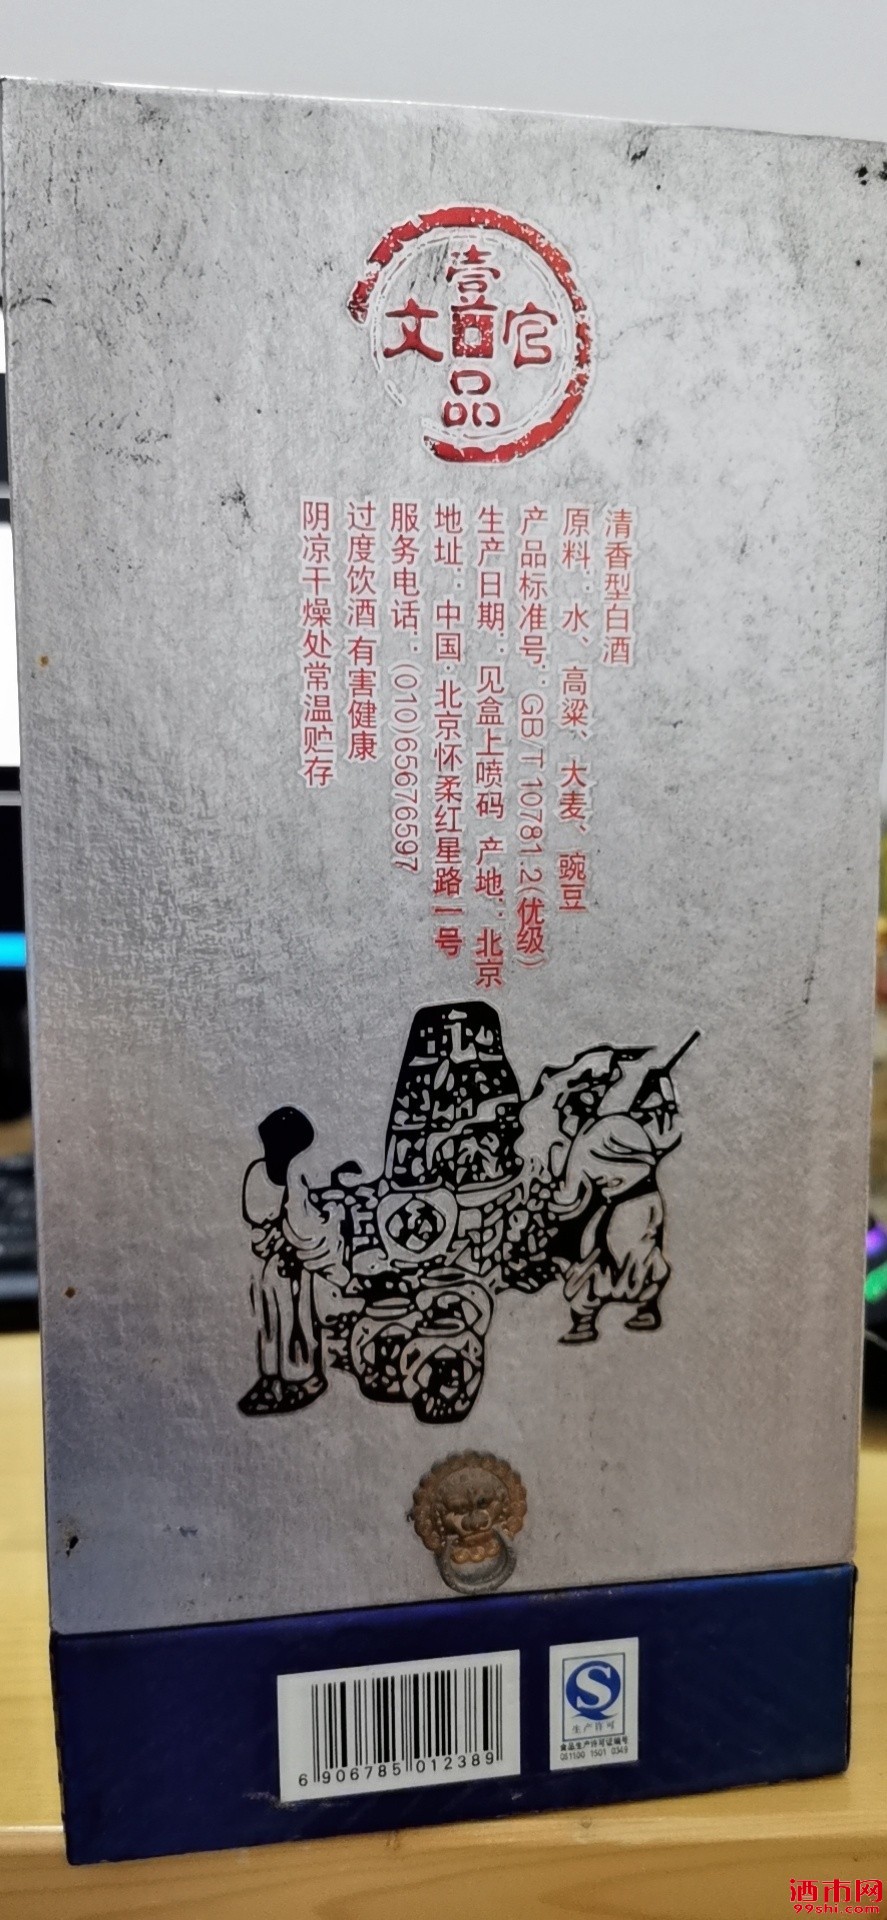 壹品
文官
清香型白酒
原料：水、高粱、大麦、豌豆
产品标准号：GB/T 10781.2(优级)
生产日期：见盒上喷码 产地：北京
地址：中国·北京怀柔红星路一号
服务电话：(010)65676597
过度饮酒 有害健康
阴凉干燥处常温贮存
6 906785 012389
生产许可
食品生产许可证编号
QS1100 1501 0349
酒市网
99shi.com